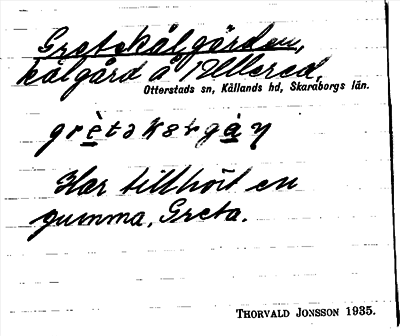 Gretekålgården,
kålgård å Ullered,
Otterstads sn, Kållands hd, Skaraborgs län.
Har tillhört en
gumma, Greta.
THORVALD JONSSON 1935.